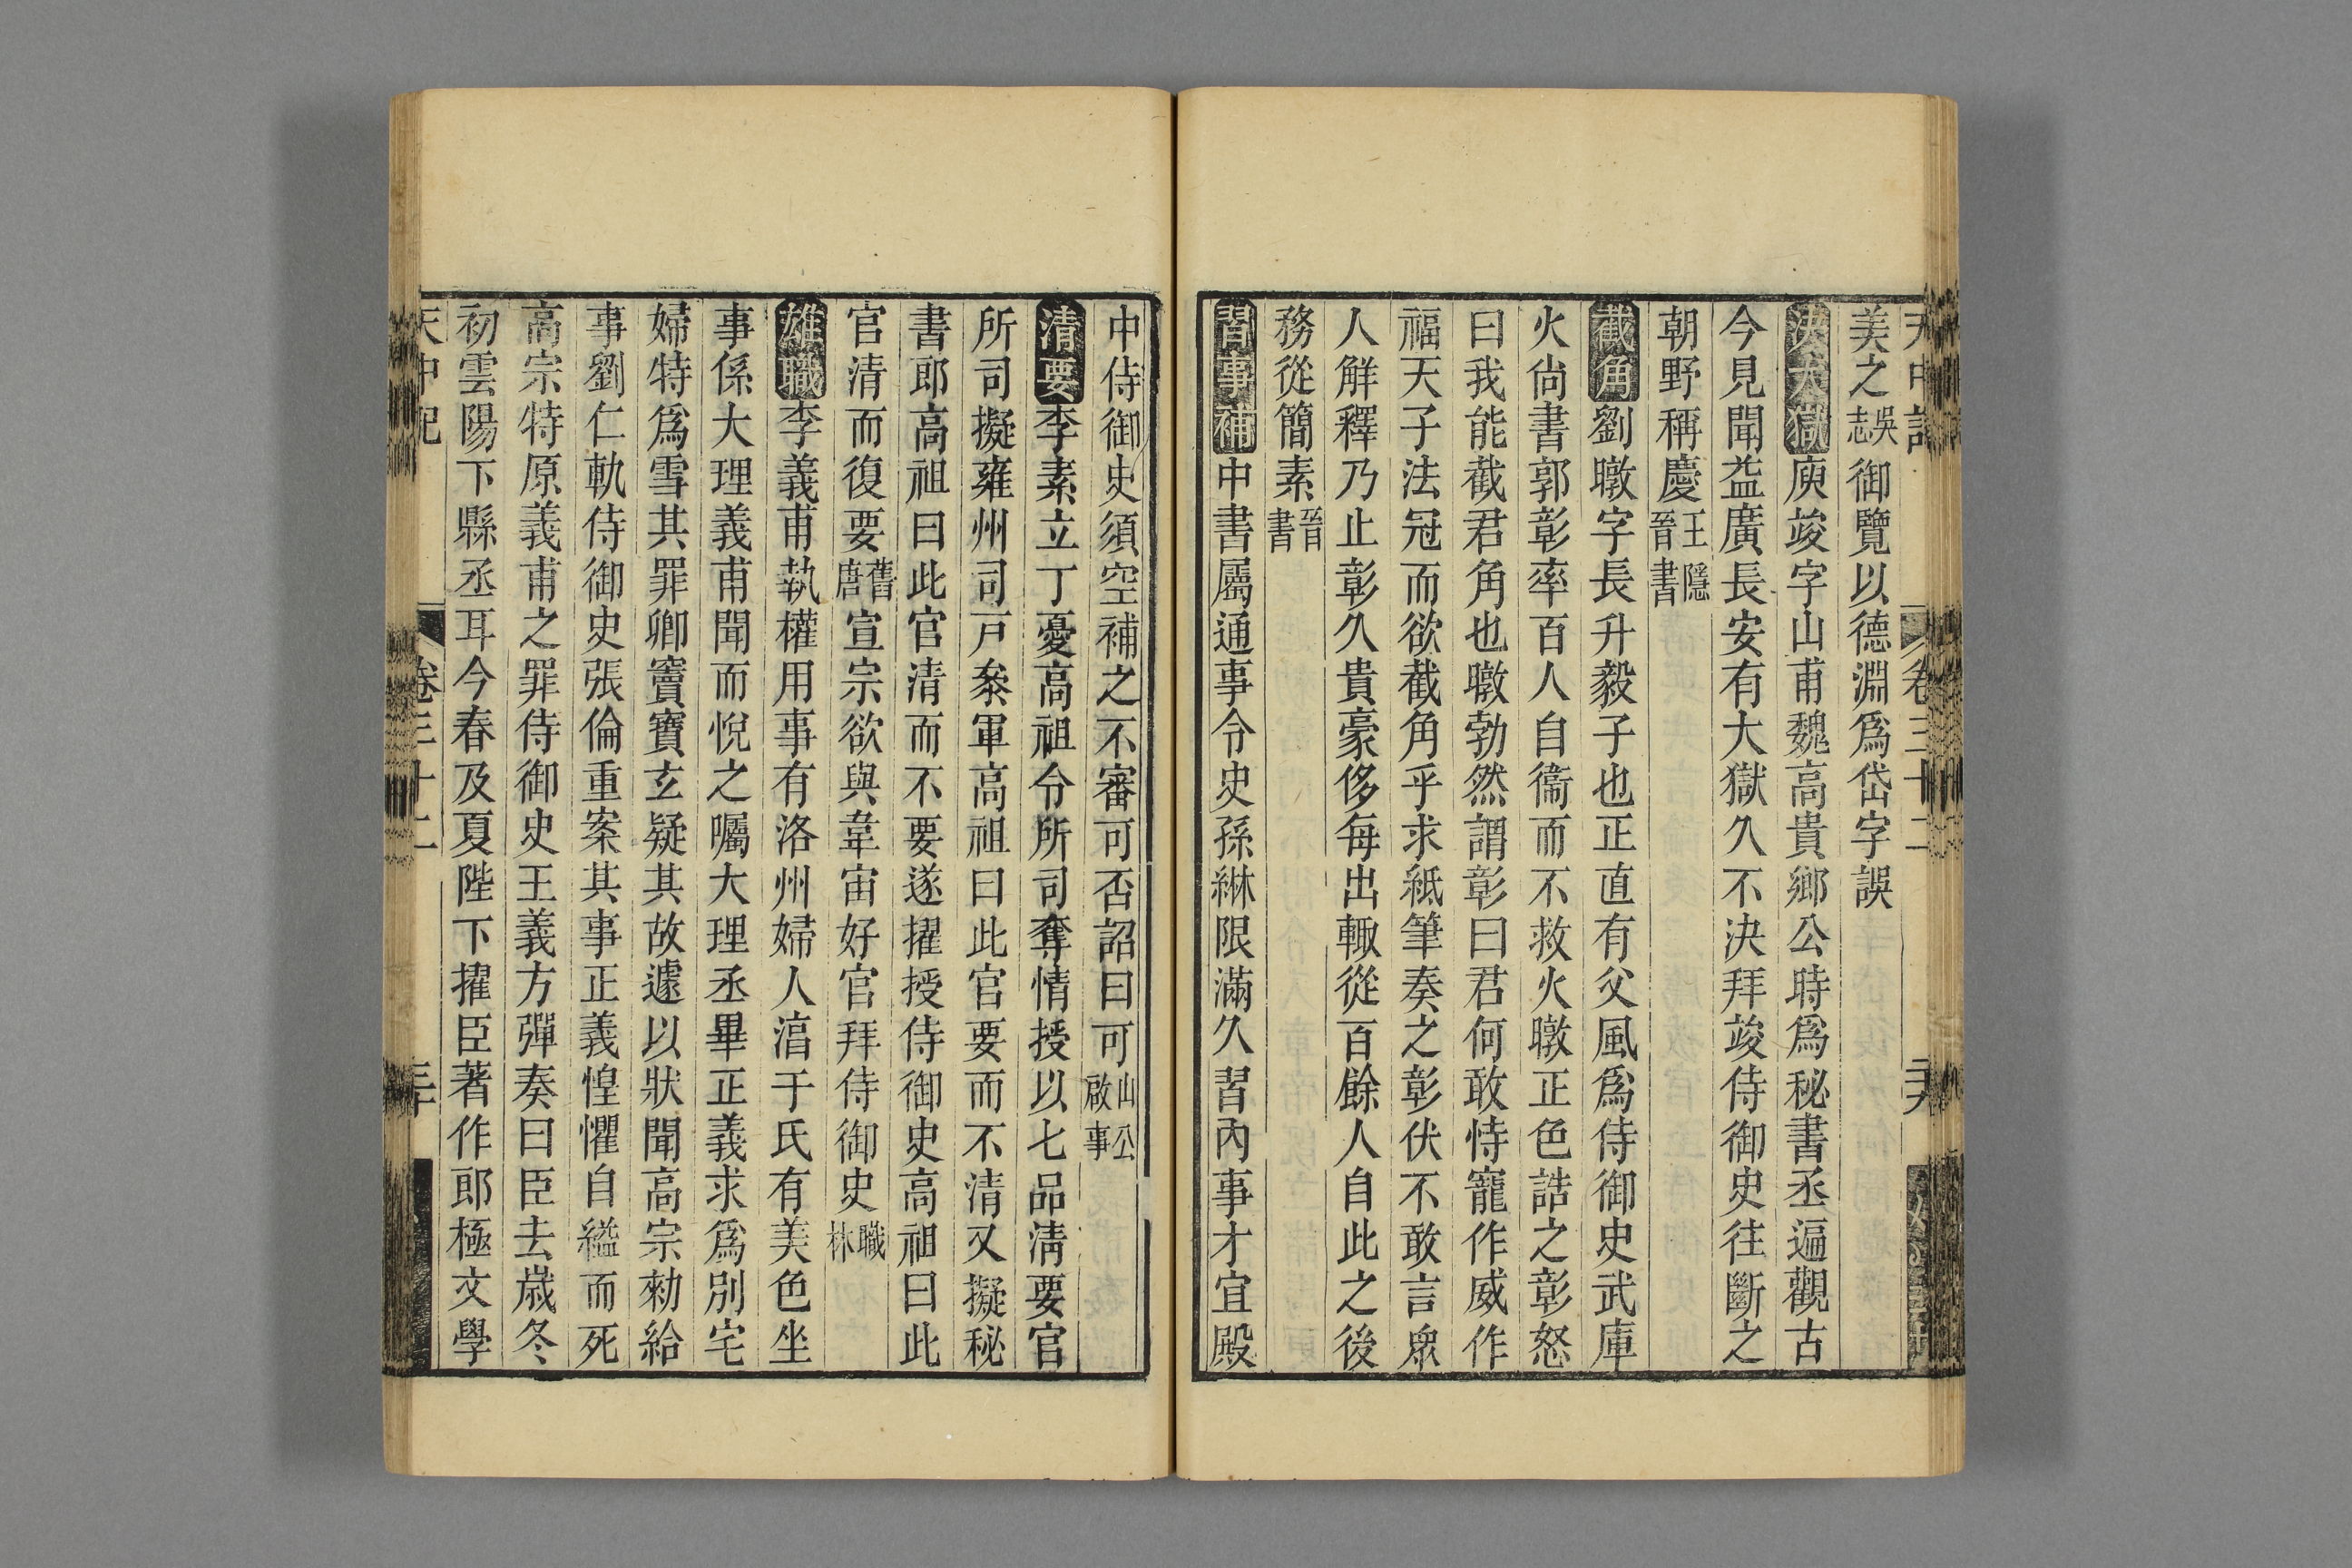 天中記 卷三十二
美之吳志御覽以德淵爲岱字誤
決大獄庾峻字山甫魏高貴鄉公時爲秘書丞遍觀古
今見聞益廣長安有大獄久不決拜峻侍御史往斷之
朝野稱慶王隱晉書
截角劉暾字長升毅子也正直有父風爲侍御史武庫
火尙書郭彰率百人自衞而不救火暾正色詰之彰怒
曰我能截君角也暾勃然謂彰曰君何敢恃寵作威作
福天子法冠而欲截角乎求紙筆奏之彰伏不敢言眾
人解釋乃止彰久貴豪侈每出輙從百餘人自此之後
務從簡素晉書
習事補中書屬通事令史孫綝限滿久習內事才宜殿
中侍御史須空補之不審可否詔曰可山公啟事
清要李素立丁憂高祖令所司奪情授以七品淸要官
所司擬雍州司戸叅軍高祖曰此官要而不清又擬秘
書郎高祖曰此官清而不要遂擢授侍御史高祖曰此
官清而復要舊唐宣宗欲與韋宙好官拜侍御史職林
雄職李義甫執權用事有洛州婦人湻于氏有美色坐
事係大理義甫聞而悅之囑大理丞畢正義求爲別宅
婦特爲雪其罪卿竇寶玄疑其故遽以狀聞高宗勑給
事劉仁軌侍御史張倫重案其事正義惶懼自縊而死
高宗特原義甫之罪侍御史王義方彈奏曰臣去歲冬
初雲陽下縣丞耳今春及夏陛下擢臣著作郎極文學
天中記 卷三十二 三十